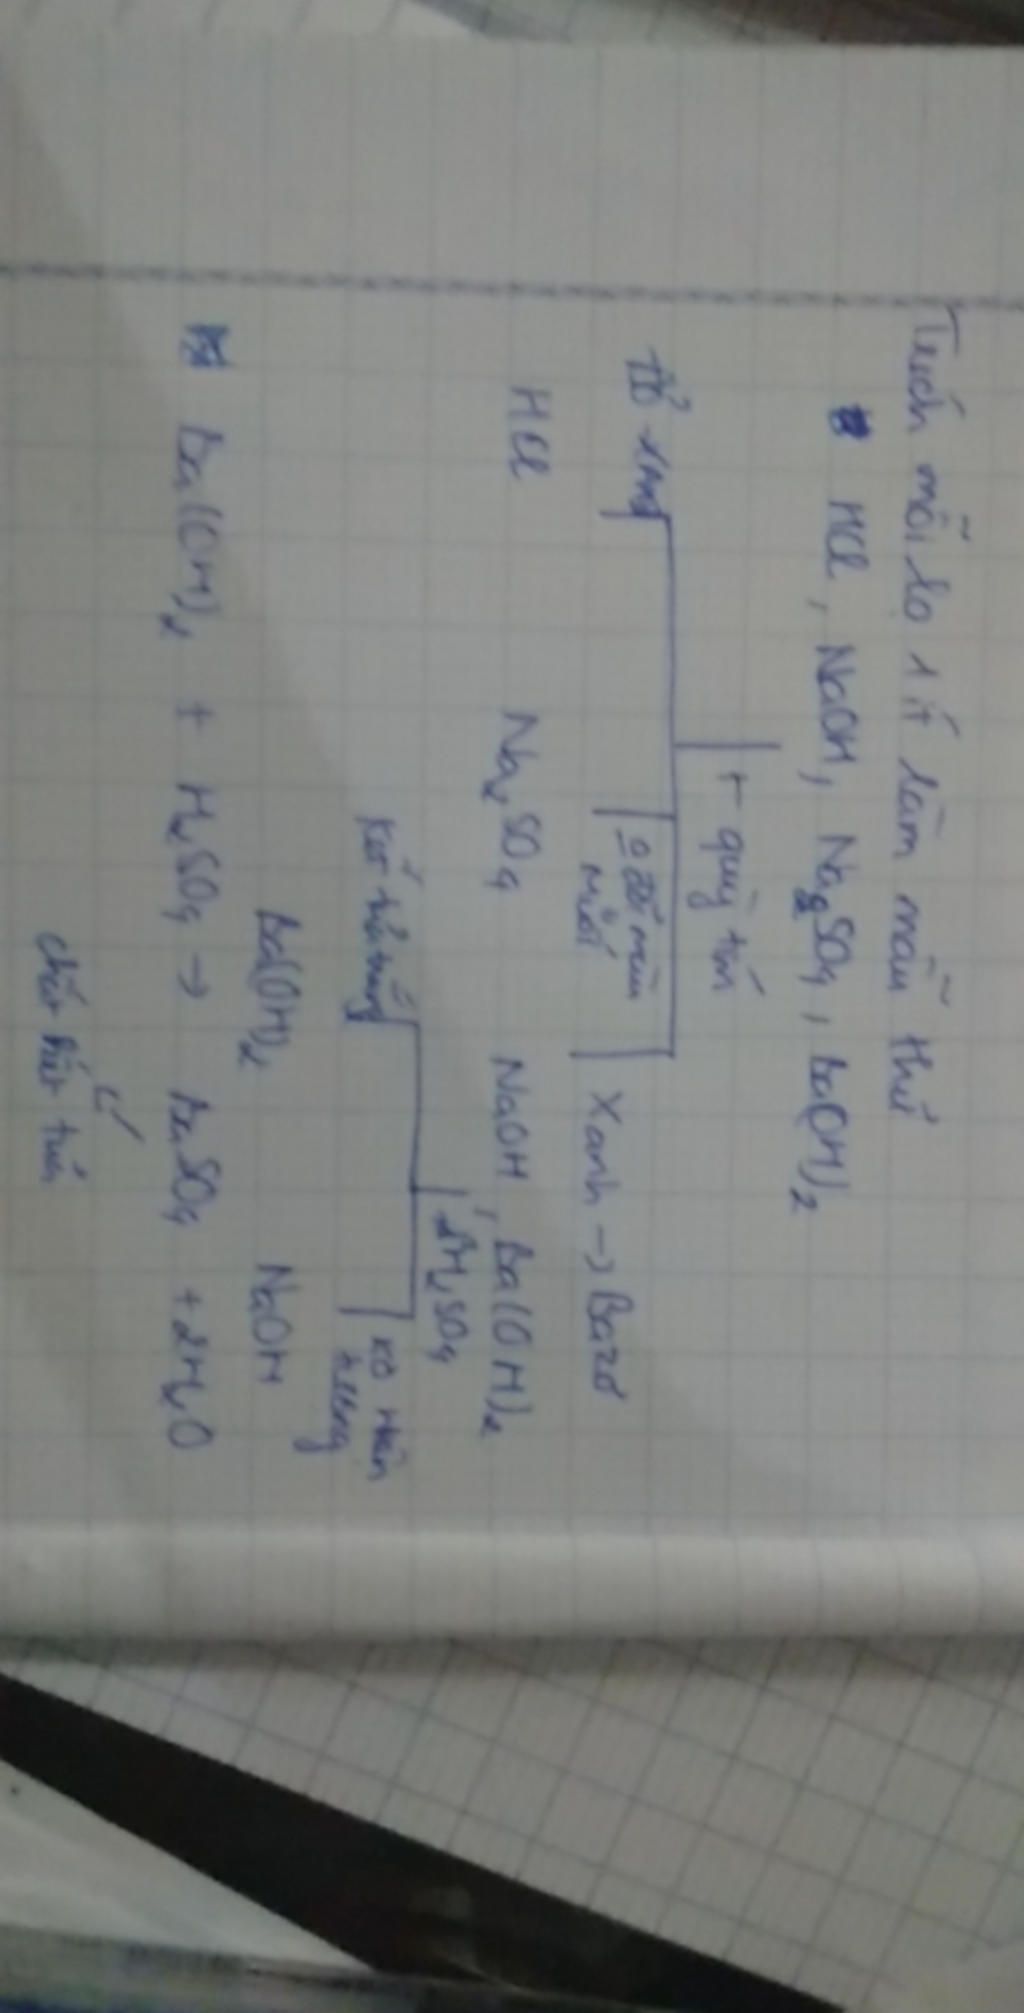 Trích mỗi lọ 1 ít làm mẫu thử
HCl, NaOH, Na2SO4, Ba(OH)2
+ quỳ tím
Đỏ
o đổi màu
muối
Xanh → Bazơ
HCl
Na2SO4
NaOH, Ba(OH)2
H2SO4
Kết tủa trắng
ko hiện
tượng
Ba(OH)2
NaOH
Ba(OH)2 + H2SO4 → BaSO4 + 2H2O
chất kết tủa